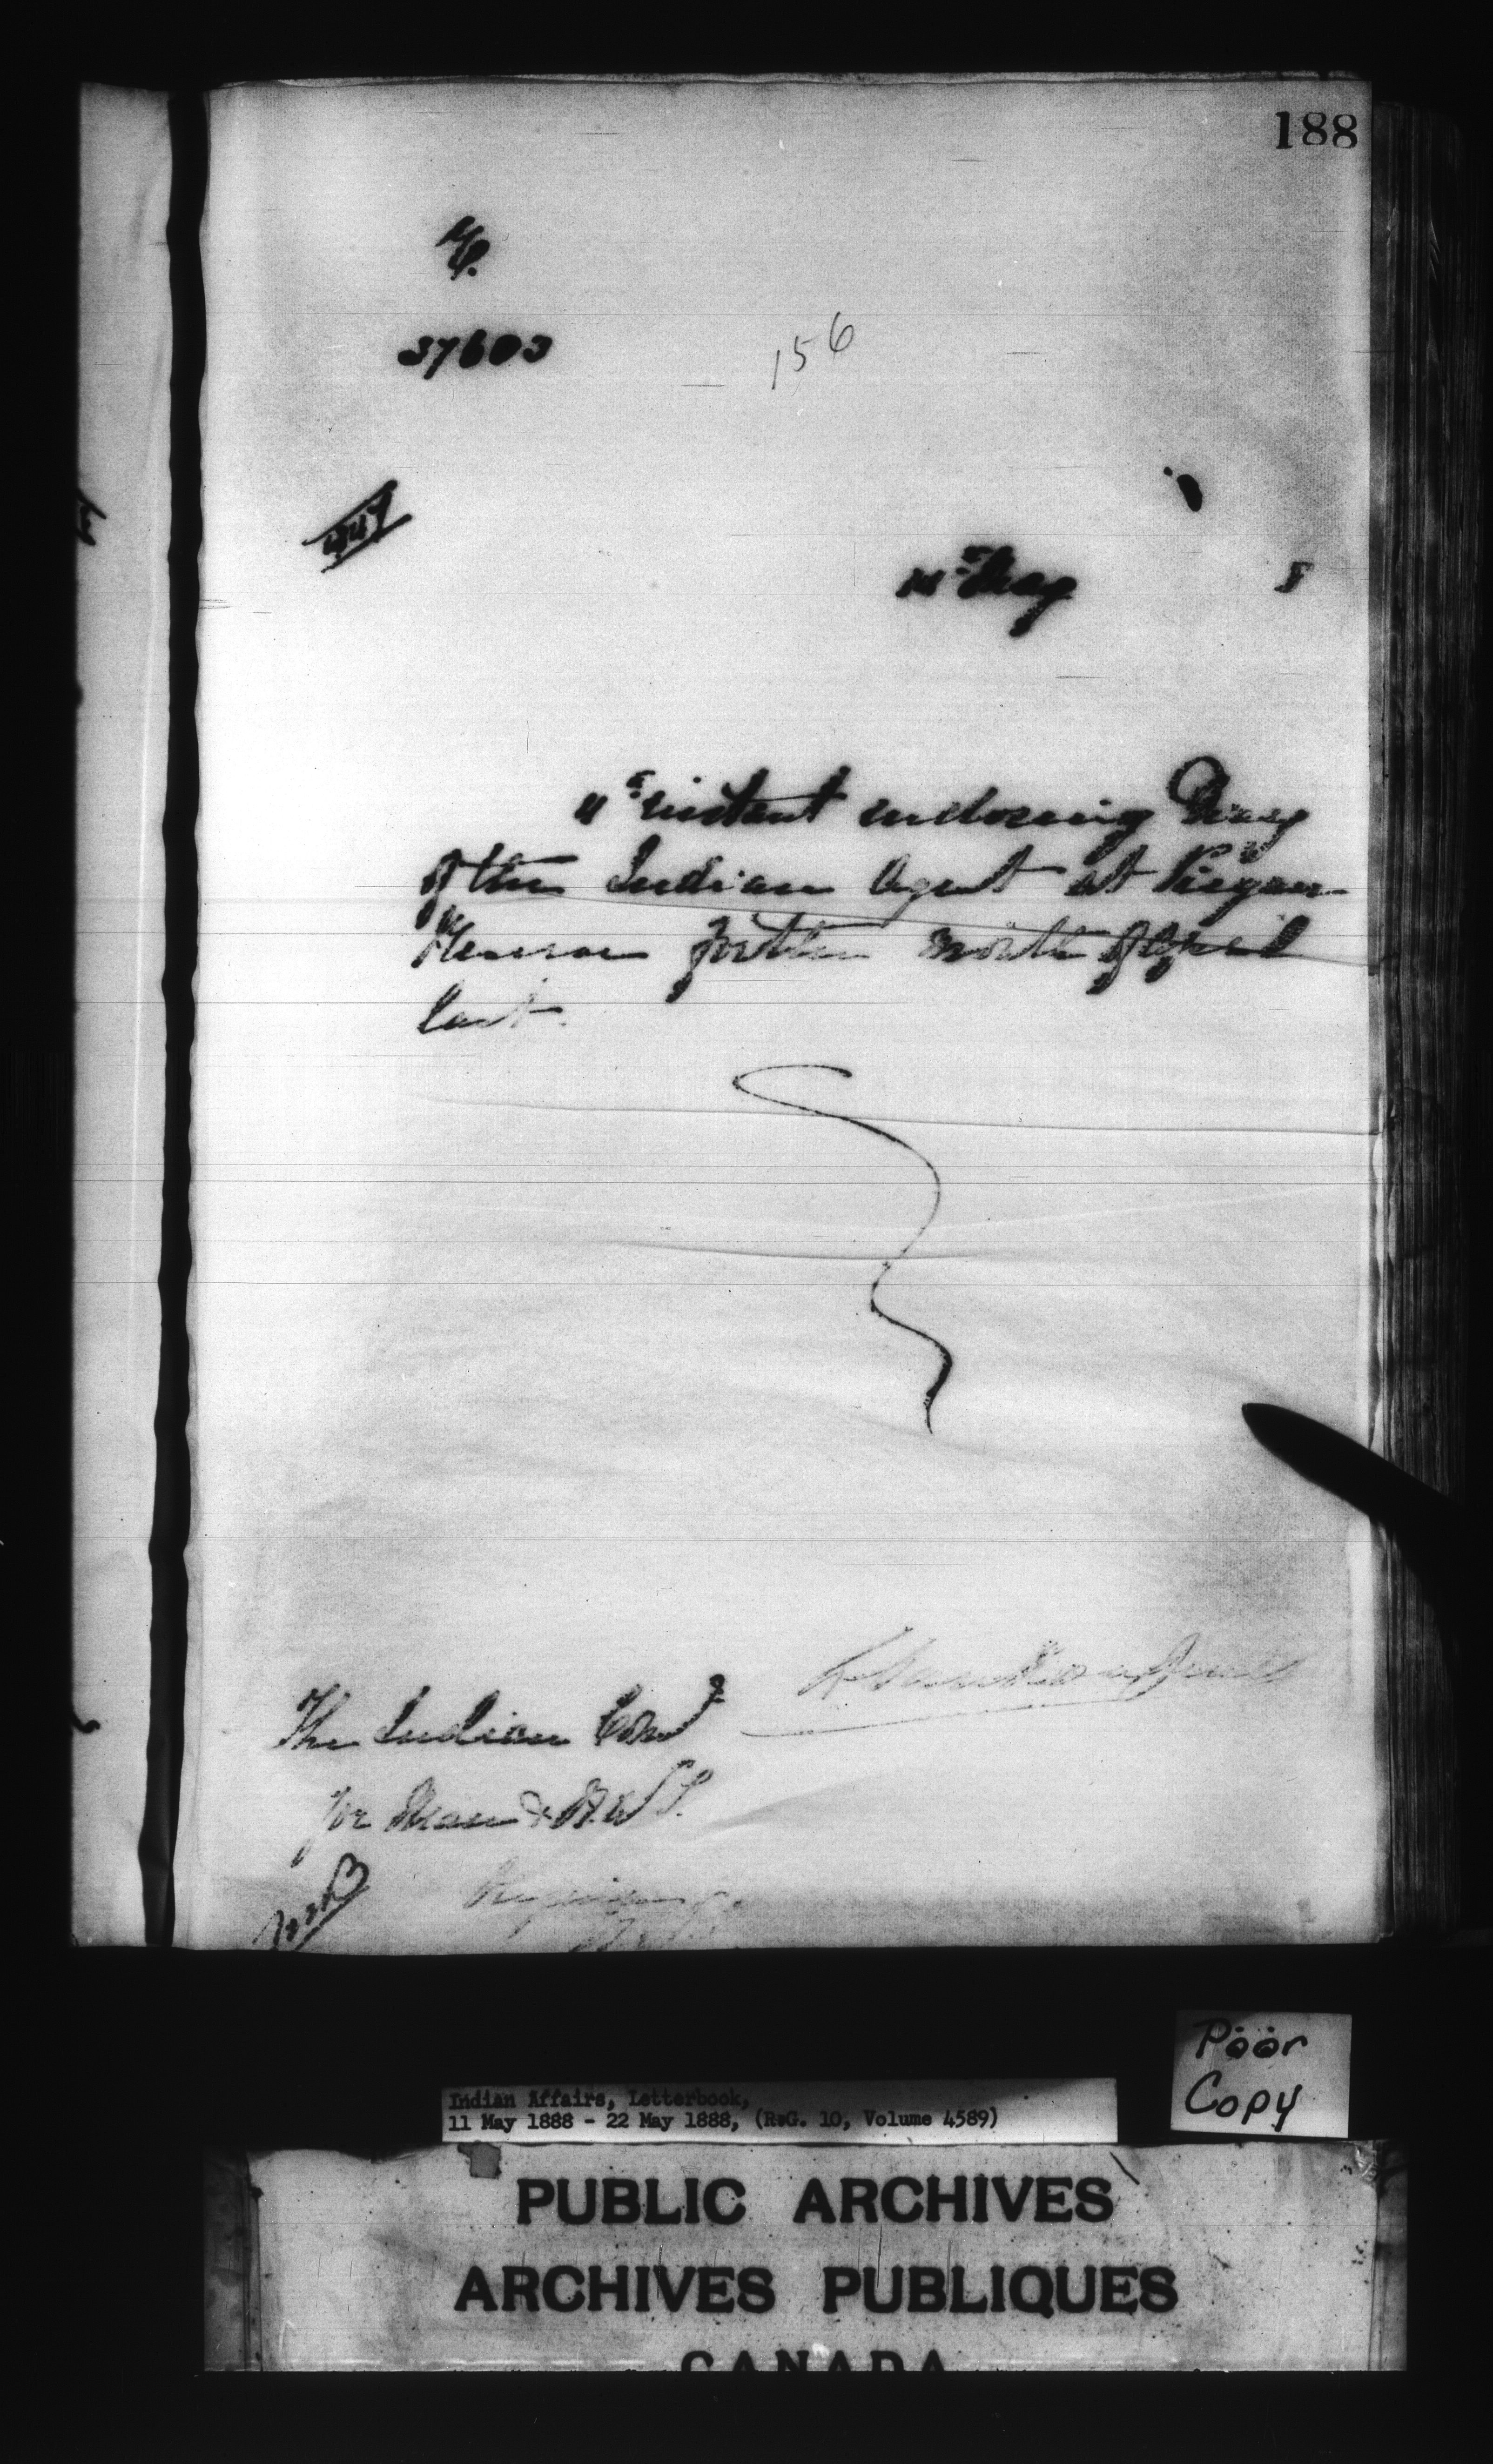 188
37603
156
May
8
11th instant enclosing Diary
of the Indian Agent at Piegan
Reserve for the month of April
last.
The Indian Comr
for Man & N.W.T.
Regina
Poor
Copy
Indian Affairs, Letterbook,
11 May 1888 - 22 May 1888, (R.G. 10, Volume 4589)
PUBLIC ARCHIVES
ARCHIVES PUBLIQUES
CANADA